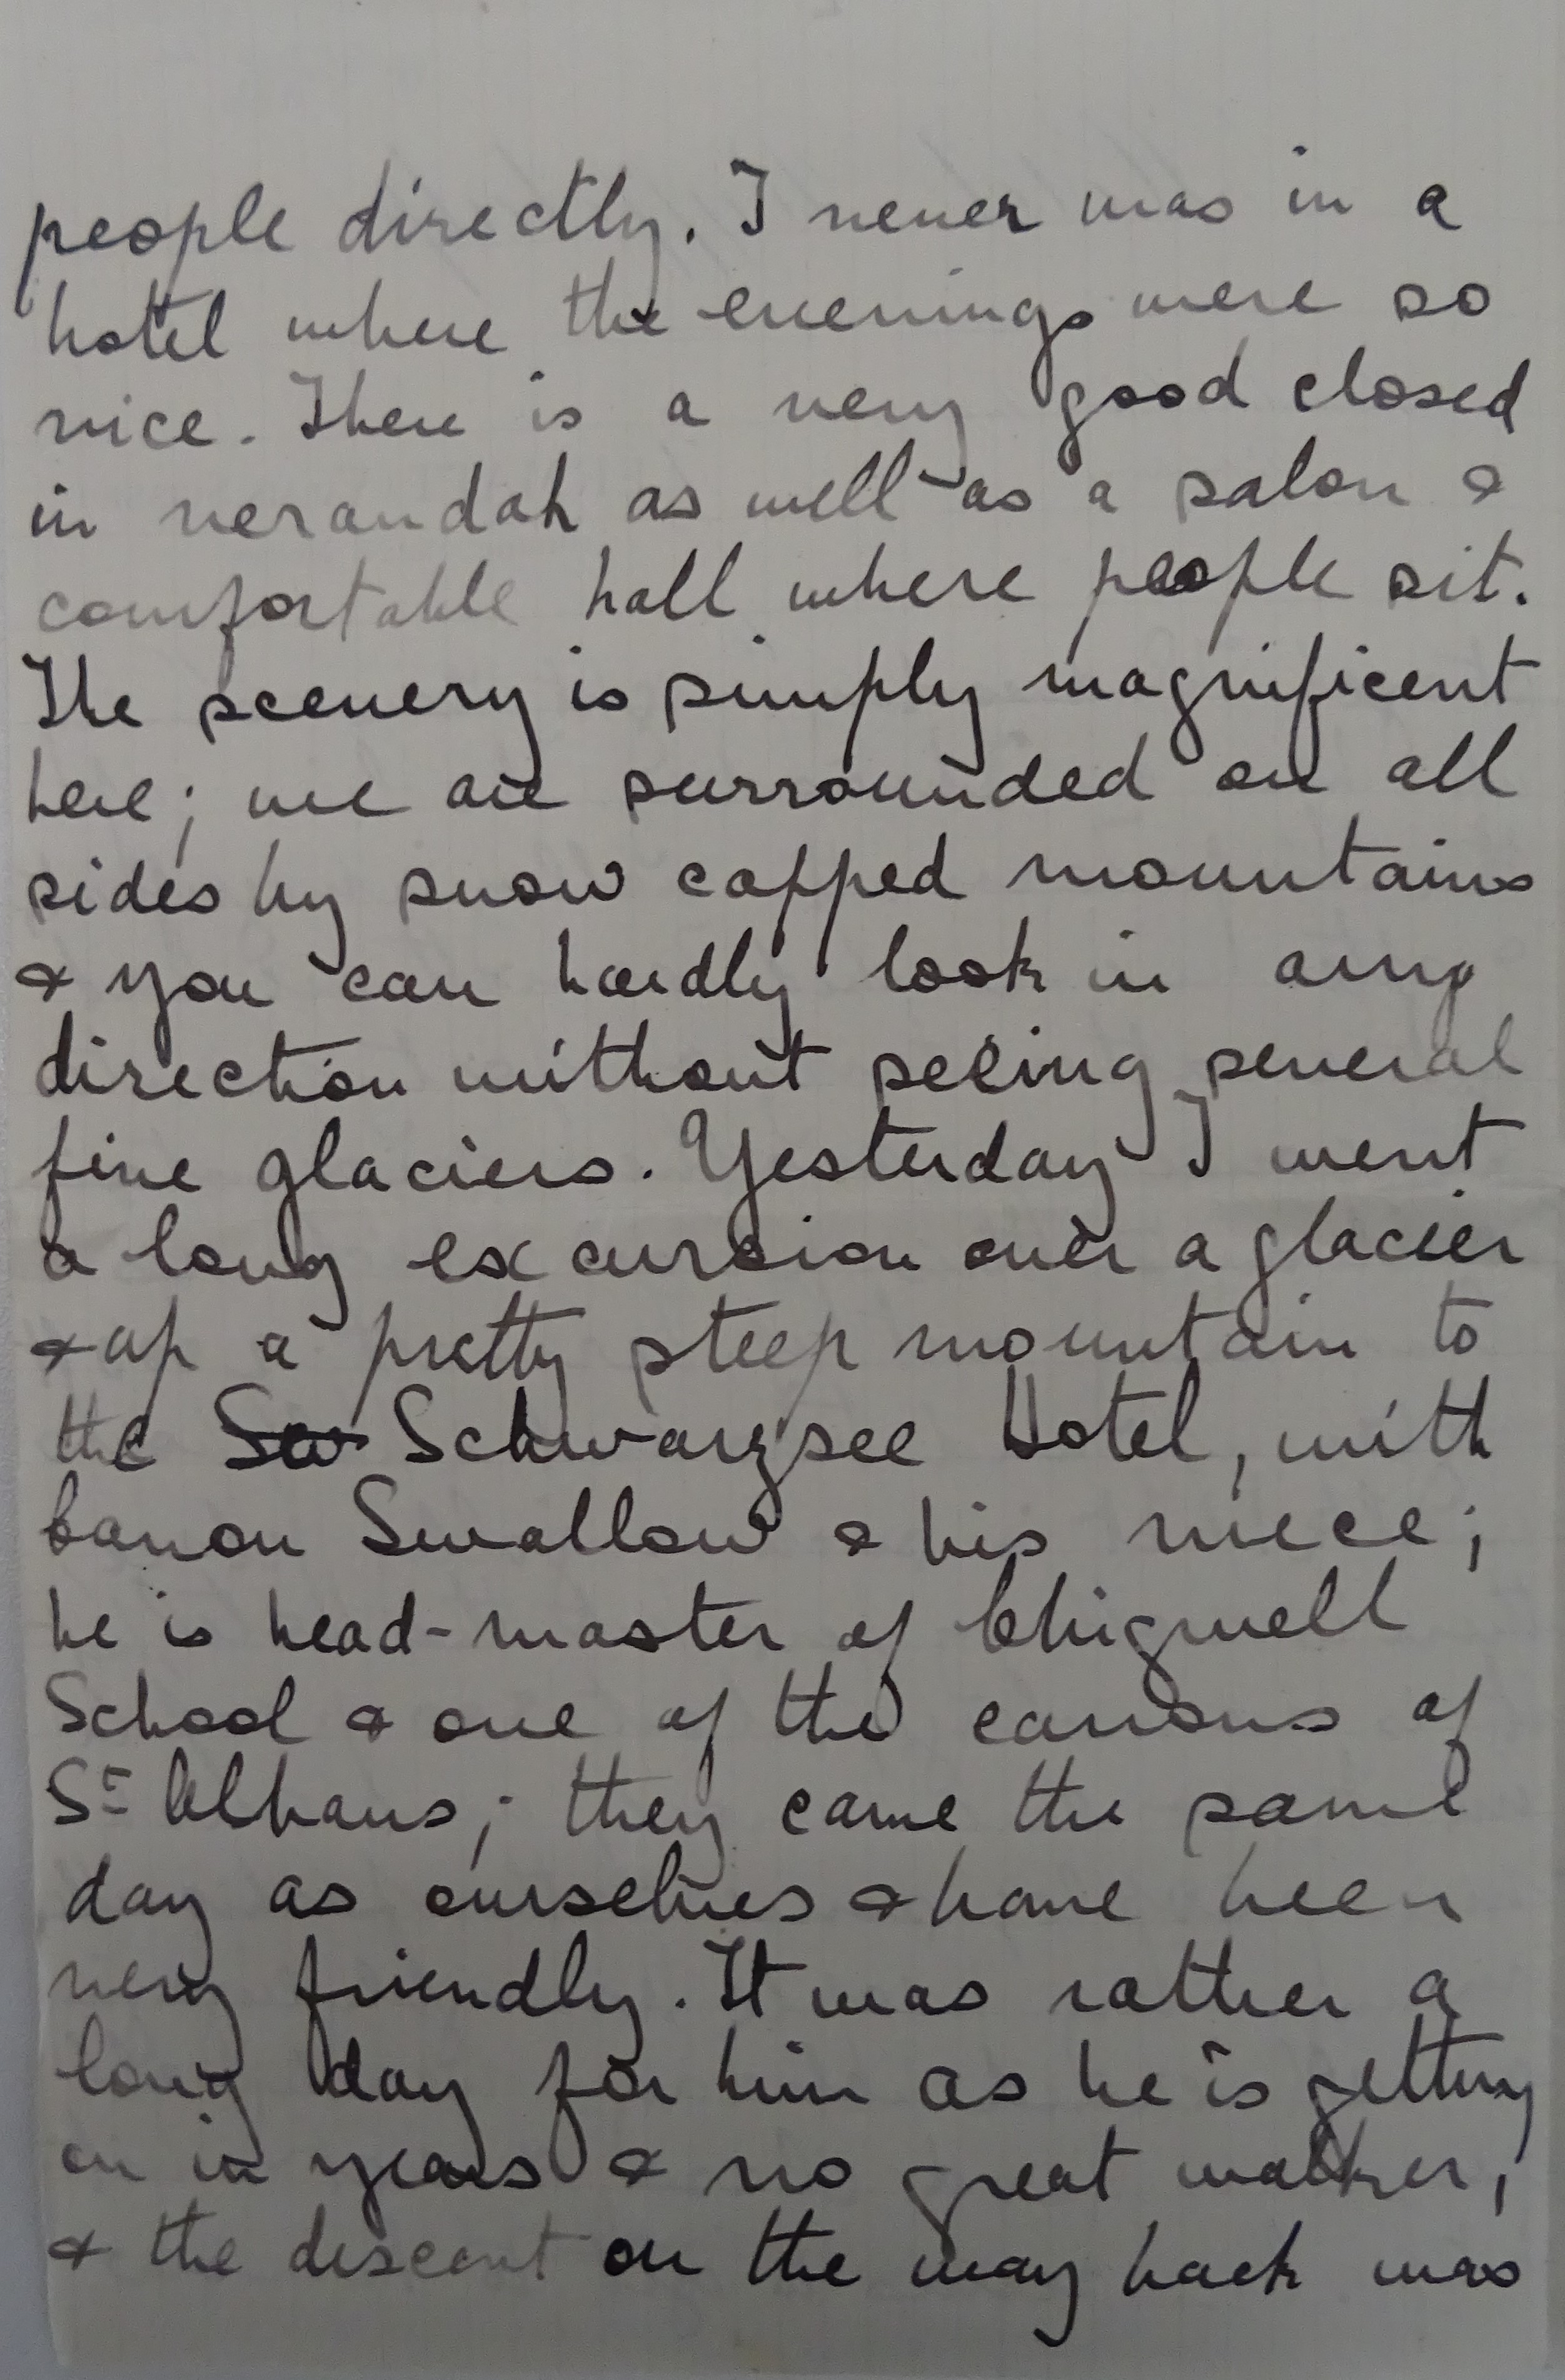 people directly. I never was in a
hotel where the evenings were so
nice. There is a very good closed
in verandah as well as a salon &
comfortable hall where people sit.
The scenery is simply magnificent
here; we are surrounded on all
sides by snow capped mountains
& you can hardly look in any
direction without seeing several
fine glaciers. Yesterday I went
a long excursion over a glacier
& up a pretty steep mountain to
the Sw Schwarzsee Hotel, with
Canon Swallow & his niece;
he is head-master of Chigwell
School & one of the canons of
St Albans; they came the same
day as ourselves & have been
very friendly. It was rather a
long day for him as he is getting
on in years & no great walker,
& the descent on the way back was